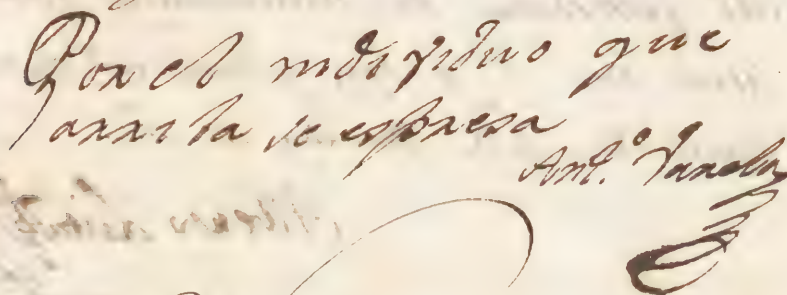 Por el individuo que
arriba se espresa
Ant.º Varela